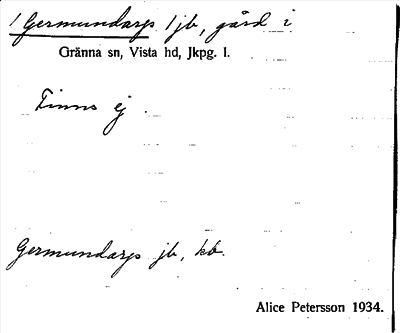 /Germundarps /jb, gård i
Gränna sn, Vista hd, Jkpg. l.
Finns ej.
Germundarps jb, kb.
Alice Petersson 1934.